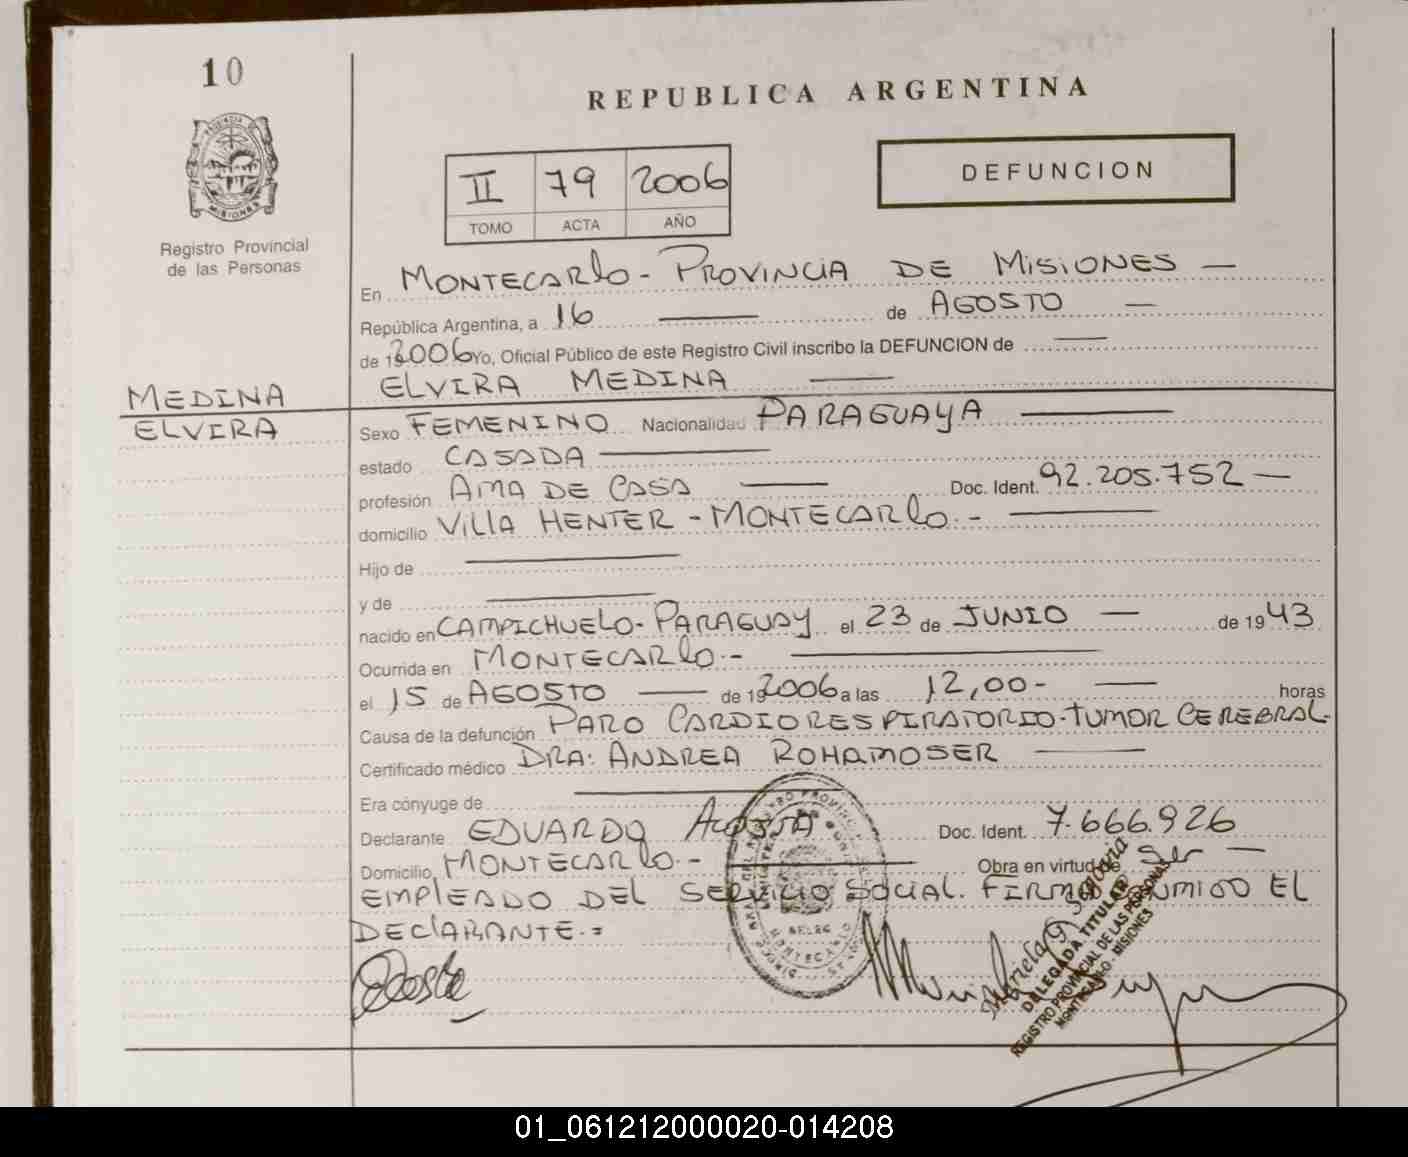 10
REPUBLICA ARGENTINA
DEFUNCION
II 79 2006
TOMO ACTA AÑO
PROVINCIA
MISIONES
Registro Provincial
de las Personas
En MONTECARLO - PROVINCIA DE MISIONES —
República Argentina, a 16 — de AGOSTO —
de 2006 Yo, Oficial Público de este Registro Civil inscribo la DEFUNCION de —
MEDINA
ELVIRA MEDINA —
ELVIRA
Sexo FEMENINO Nacionalidad PARAGUAYA —
estado CASADA —
profesión AMA DE CASA — Doc. Ident. 92.205.752 —
domicilio VILLA HENTER - MONTECARLO.- —
Hijo de —
y de —
nacido en CAMPICHUELO - PARAGUAY el 23 de JUNIO — de 1943
Ocurrida en MONTECARLO.- —
el 15 de AGOSTO — de 2006 a las 12,00- — horas
Causa de la defunción PARO CARDIORESPIRATORIO - TUMOR CEREBRAL-
Certificado médico DRA: ANDREA ROHAMOSER —
Era cónyuge de —
Declarante EDUARDO ACOSTA Doc. Ident. 7.666.926
Domicilio MONTECARLO.- — Obra en virtud de Ser —
EMPLEADO DEL SERVICIO SOCIAL. FIRMA CUMIGO EL
DECLARANTE.=
Acosta
MONTECARLO
DELEGADA TITULAR
REGISTRO PROVINCIAL DE LAS PERSONAS
MONTECARLO - MISIONES
01_061212000020-014208